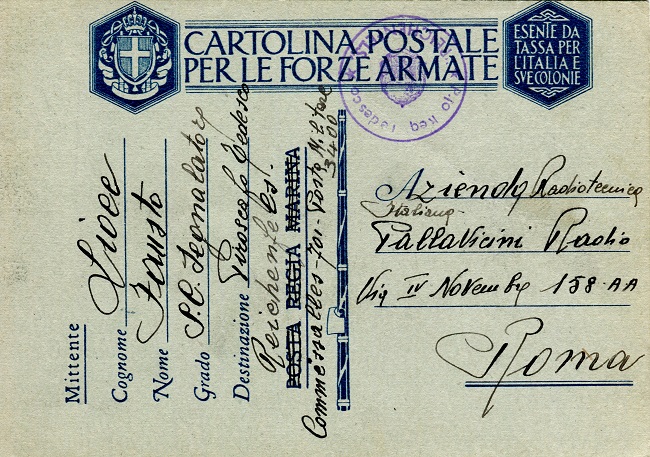 CARTOLINA POSTALE
PER LE FORZE ARMATE
ESENTE DA
TASSA PER
L'ITALIA E
SVE COLONIE
Mittente
Cognome
Nome Fausto
Grado S.C. Segnalatore
Destinazione Piroscafo Tedesco
POSTA REGIA MARINA
3400
P.jo Req. Tedesco
Azienda Radiotecnica
Italiana
Pallavicini Radio
Via IV Novembre 158 AA
Roma